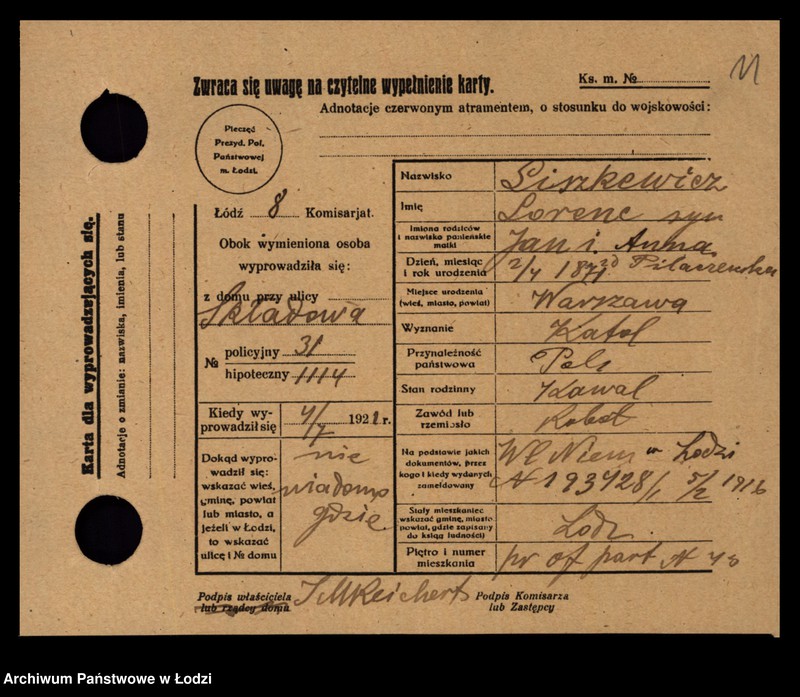 Zwraca się uwagę na czytelne wypełnienie karty.
Ks. m. №
Adnotacje czerwonym atramentem, o stosunku do wojskowości:
Pieczęć
Prezyd. Pol.
Państwowej
m. Łodzi.
Karta dla wyprowadzających się.
Adnotacje o zmianie: nazwiska, imienia, lub stanu
Łódź 8 Komisarjat.
Obok wymieniona osoba
wyprowadziła się:
z domu przy ulicy
Składowa
№ policyjny 31
hipoteczny 1114
Kiedy wy-
prowadził się 4/7 1921 r.
Dokąd wypro-
wadził się:
wskazać wieś,
gminę, powiat
lub miasto, a
jeżeli w Łodzi,
to wskazać
ulicę i № domu
nie
wiadomo
gdzie
Nazwisko Liszkewicz
Imię Lorenc syn
Imiona rodziców
i nazwisko panieńskie
matki
Jan i Anna
Dzień, miesiąc
i rok urodzenia 2/4 1871
Miejsce urodzenia
(wieś, miasto, powiat) Warszawa
Wyznanie Katol
Przynależność
państwowa Pols
Stan rodzinny Kawal
Zawód lub
rzemiosło Robot
Na podstawie jakich
dokumentów, przez
kogo i kiedy wydanych
zameldowany
Wł Niem w Łodzi
N 193428/1 5/2 1916
Stały mieszkaniec
wskazać gminę, miasto
powiat, gdzie zapisany
do ksiąg ludności)
Lodz
Piętro i numer
mieszkania pr of part N
Podpis właściciela
lub rządcy domu
Reichert
Podpis Komisarza
lub Zastępcy
Archiwum Państwowe w Łodzi